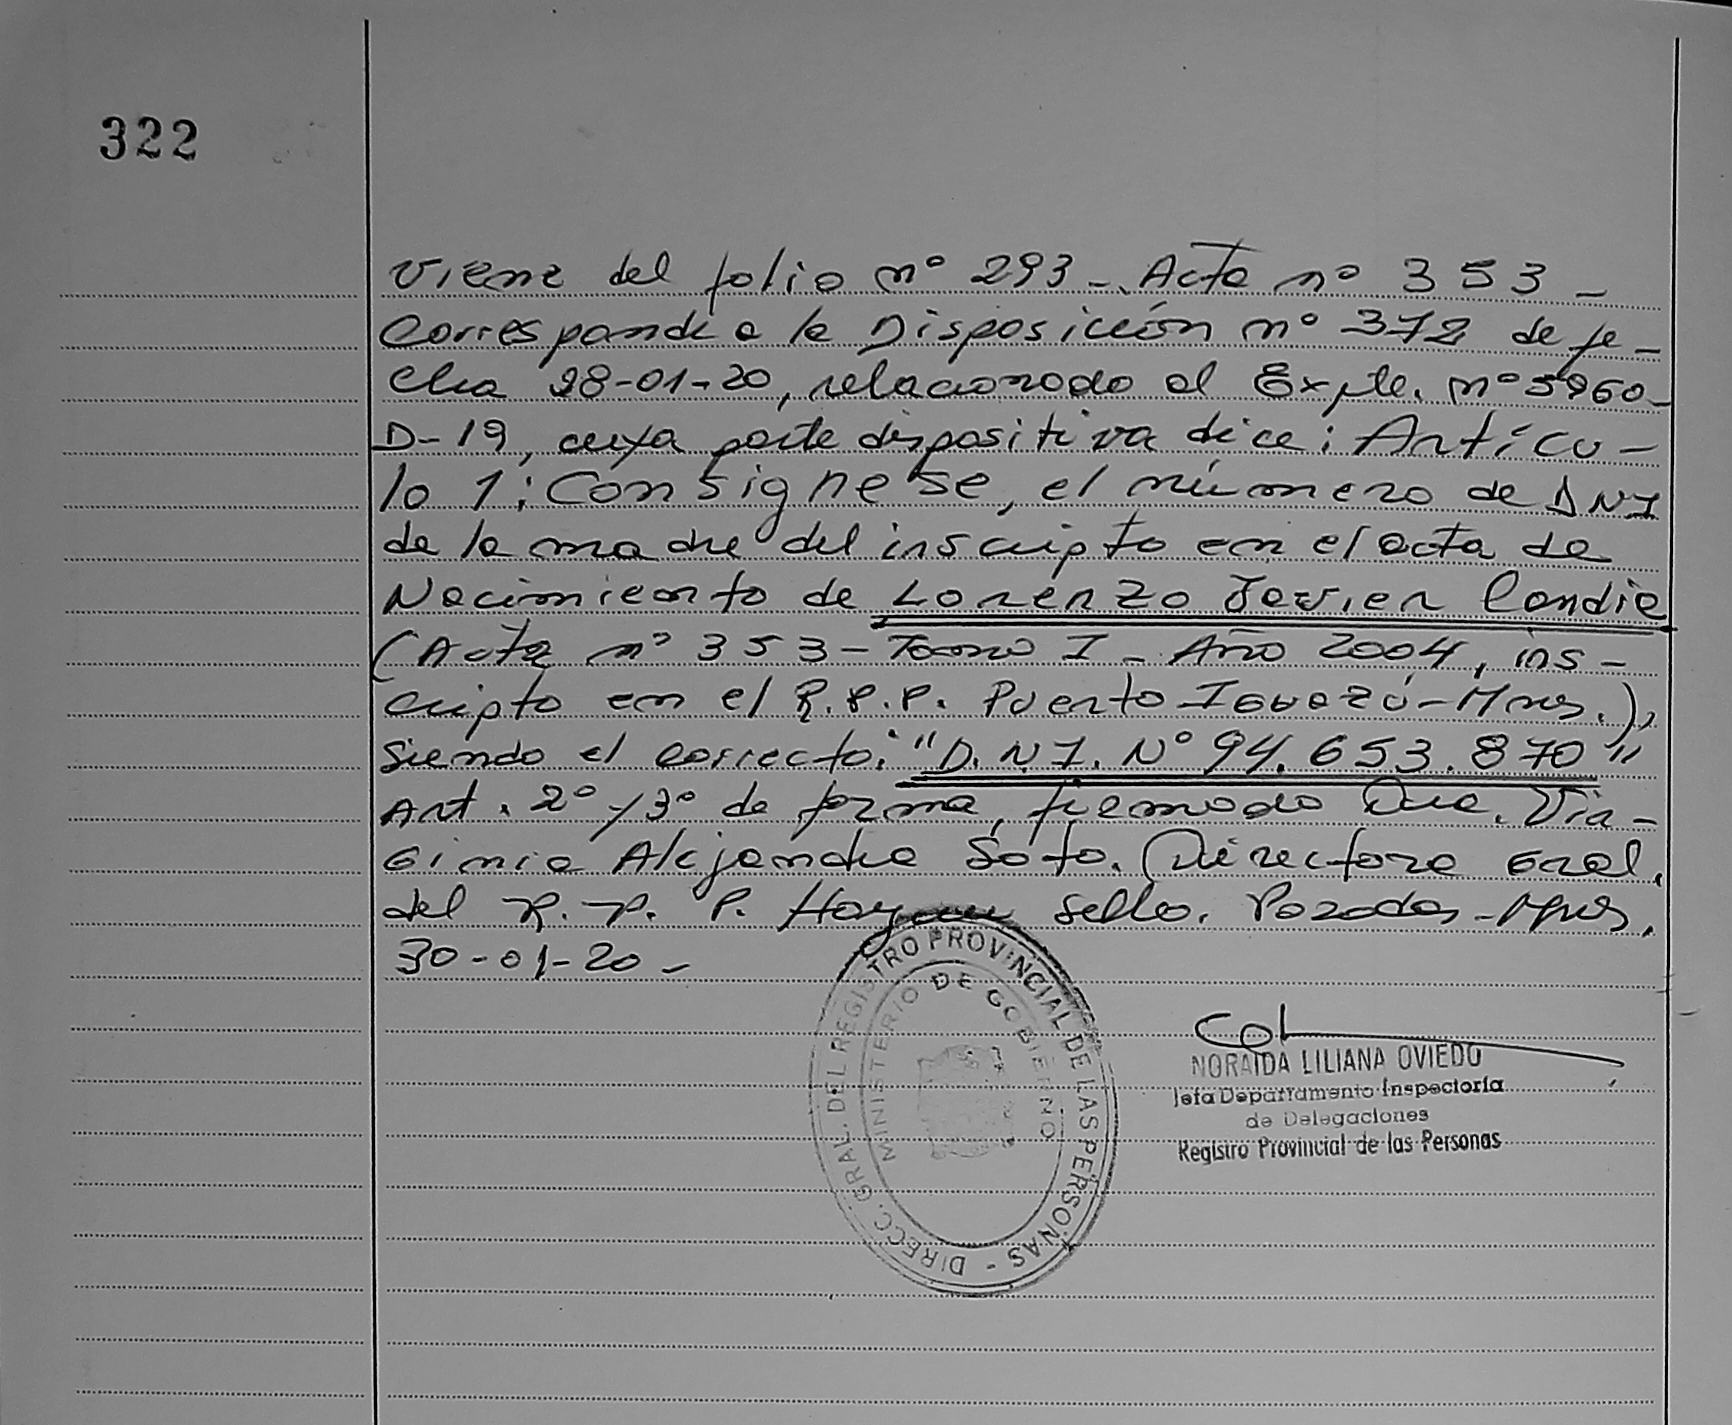 322
Viene del folio nº 293 -. Acta nº 353 -
Corresponde a la Disposición nº 372 de fe-
cha 28-01-20, relacionado al Expte. nº 5960-
D-19, cuya parte dispositiva dice: Artícu-
lo 1: Consignese, el número de DNI
de la madre del inscripto en el acta de
Nacimiento de Lorenzo Javier Candia
(Acta nº 353 - Tomo I - Año 2004, ins-
cripto en el R.P.P. Puerto Iguazú - Mnes.),
siendo el correcto: "D.N.I. Nº 94.653.870"
Art. 2º y 3º de forma, firmado Dra. Vir-
ginia Alejandra Soto. Directora Gral.
del R.P.P. Hay un sello. Posadas - Mnes.
30-01-20 -
DIRECC. GRAL. DEL REGISTRO PROVINCIAL DE LAS PERSONAS -
MINISTERIO DE GOBIERNO
NORAIDA LILIANA OVIEDO
Jefa Departamento Inspectoría
de Delegaciones
Registro Provincial de las Personas